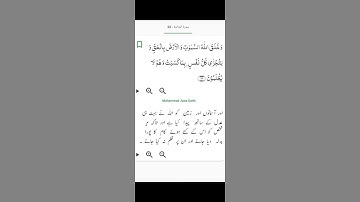 وَ خَلَقَ اللّٰهُ السَّمٰوٰتِ وَ الْاَرْضَ بِالْحَقِّ وَ
لِتُجْزٰى كُلُّ نَفْسٍۭ بِمَا كَسَبَتْ وَ هُمْ لَا
یُظْلَمُوْنَ
Muhammad Juna Garhi
اور آسمانوں اور زمین کو اللہ نے بہت ہی
عدل کے ساتھ پیدا کیا ہے اور تاکہ ہر
شخص کو اس کے کئے ہوئے کام کا پورا
بدلہ دیا جائے اور ان پر ظلم نہ کیا جائے ۔